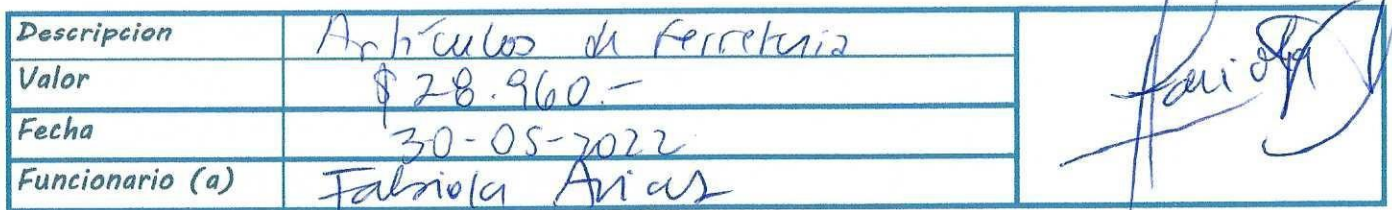 Descripcion Artículos de Ferretería
Valor $ 28.960.-
Fecha 30-05-2022
Funcionario (a) Fabiola Arias